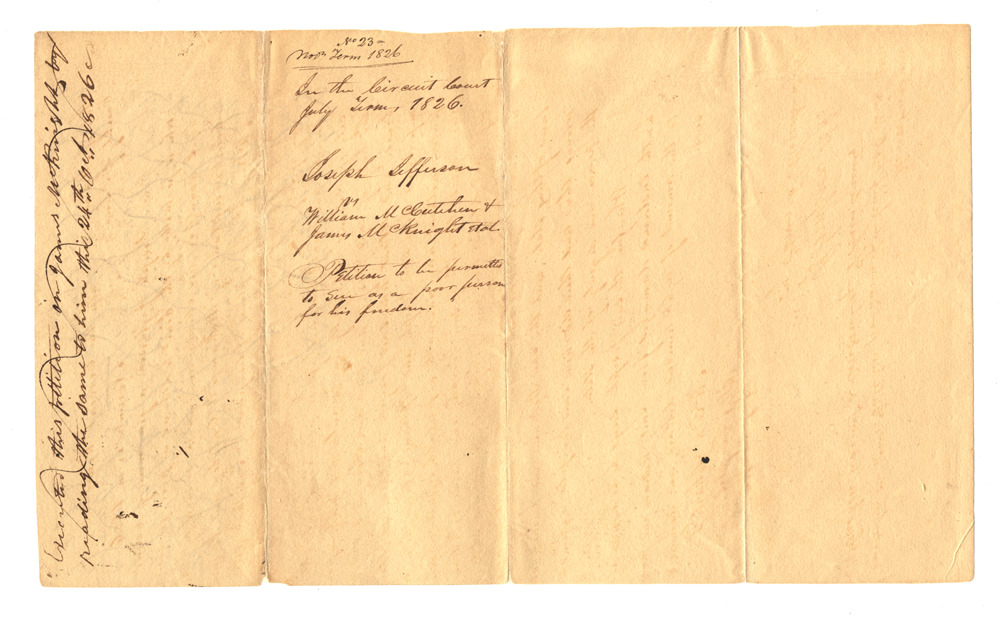 Executed this petition on James McKnight by
reading the same to him this 24th Oct 1826
No 23 -
Novr Term 1826
In the Circuit Court
July Term, 1826.
Joseph Jefferson
vs
William McCutchen &
James McKnight et al.
Petition to be permitted
to sue as a poor person
for his freedom.